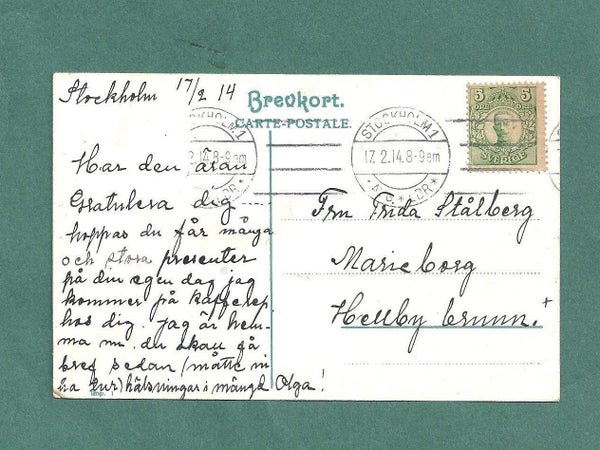 Stockholm 17/2 14
Brevkort.
CARTE-POSTALE.
STOCKHOLM 1
17.2.14.8-9em
STOCKHOLM 1
17.2.14.8-9em
5 5
ÖRE ÖRE
SVERIGE
Har den äran
Gratulera dig
hoppas du får många
och stora presenter
på din egen dag jag
kommer på kafferep
hos dig. jag är hem-
ma nu. du skall få
bref sedan (måtte ni
ha tur) hälsningar i mängd Olga!
Fru Frida Stålberg
Marieborg
Hellby brunn.
Imp.